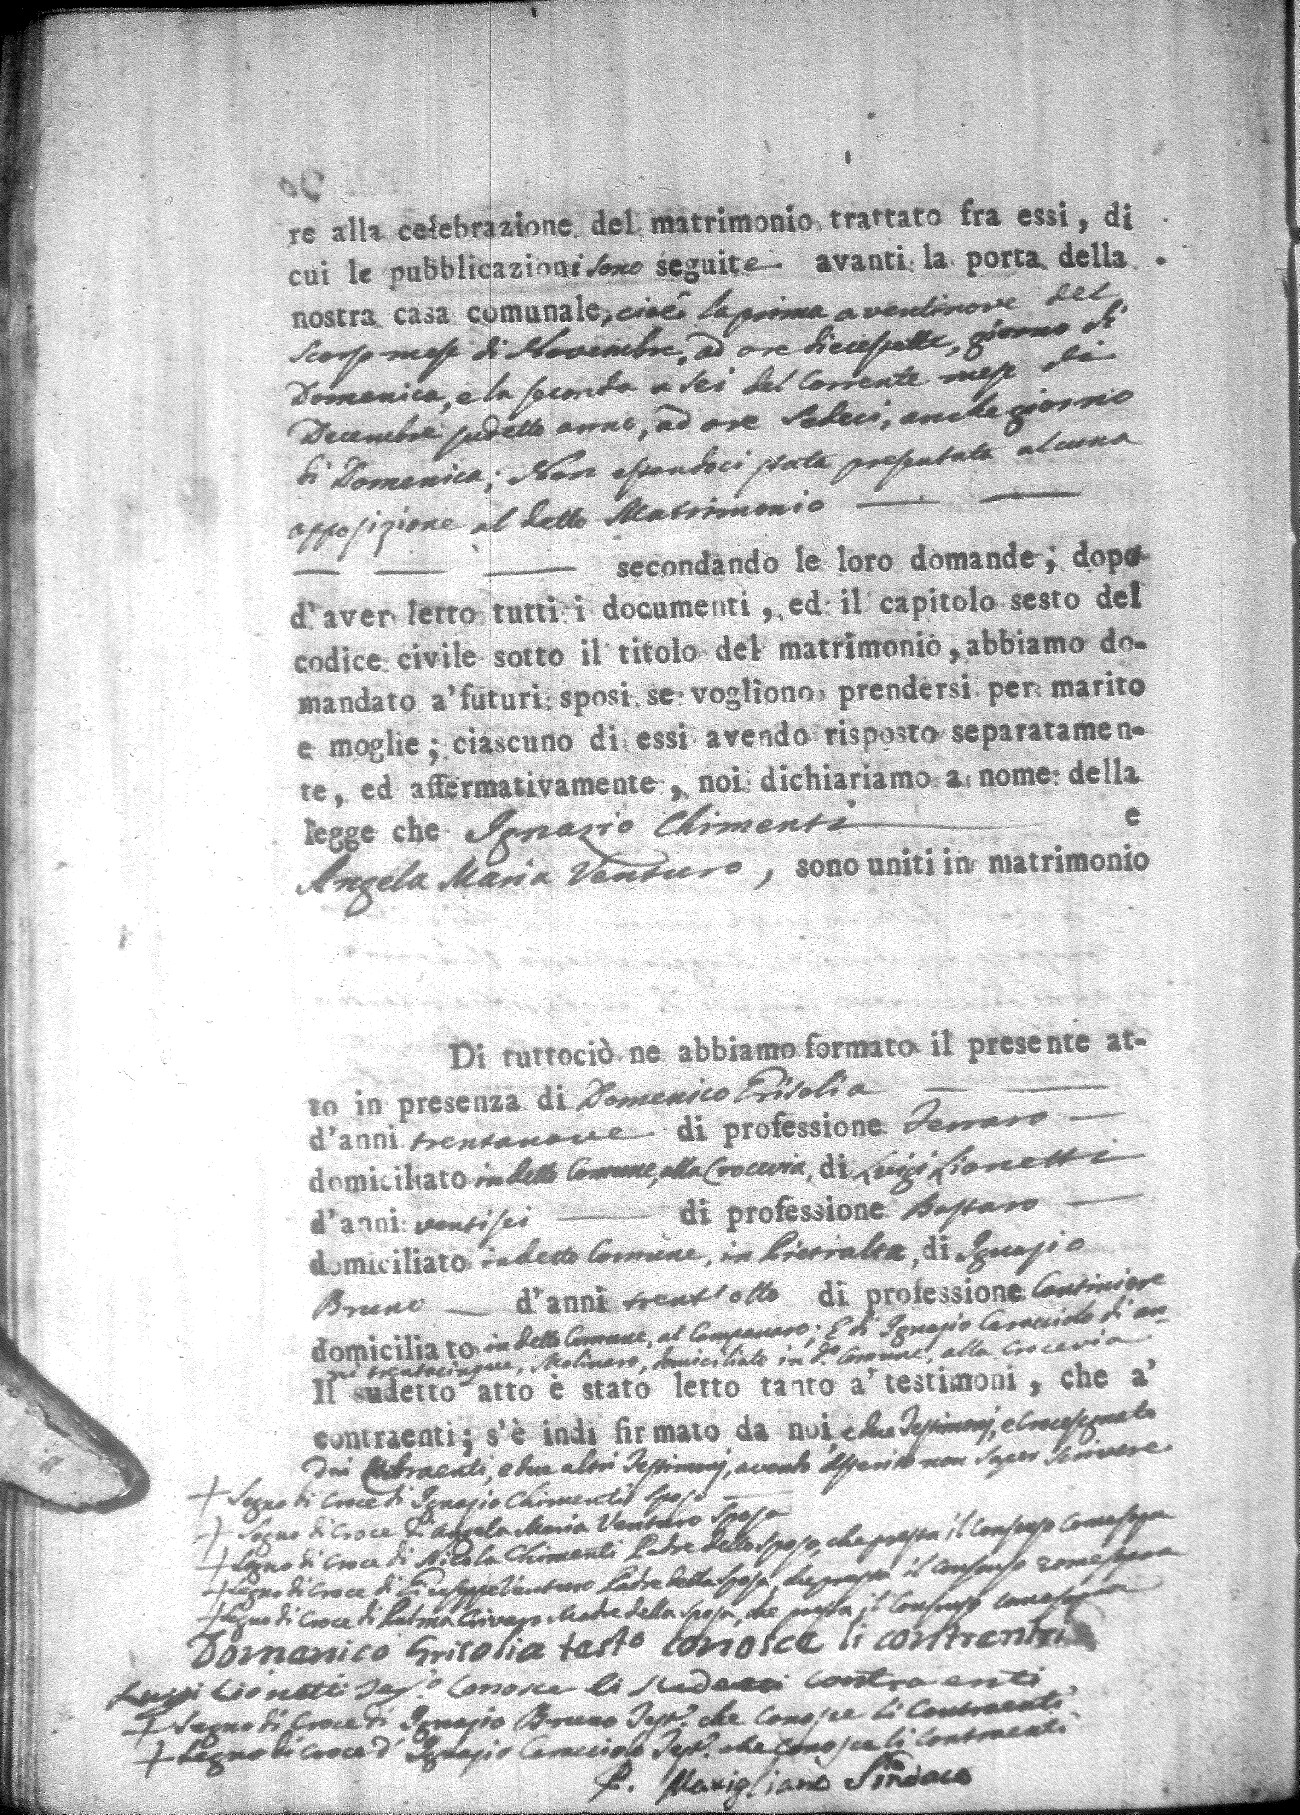 re alla celebrazione del matrimonio trattato fra essi, di
cui le pubblicazioni sono seguite avanti la porta della
nostra casa comunale, cioè la prima a ventinove del
scorso mese di Novembre, ad ore diecesette, giorno di
Domenica, e la seconda a sei del corrente mese di
Decembre sudetto anno, ad ore sedeci, anche giorno
di Domenica; Non essendoci stata presentata alcuna
opposizione al detto Matrimonio
secondando le loro domande; dopo
d'aver letto tutti i documenti, ed il capitolo sesto del
codice civile sotto il titolo del matrimonio, abbiamo do-
mandato a' futuri sposi se vogliono prendersi per marito
e moglie; ciascuno di essi avendo risposto separatamen-
te, ed affermativamente, noi dichiariamo a nome della
legge che Ignazio Chimenti e
Angela Maria Venturo, sono uniti in matrimonio
Di tuttociò ne abbiamo formato il presente at-
to in presenza di Domenico Grisolia
d'anni trentanove di professione Ferraro
domiciliato in detto Comune, alla Crocevia, di Luigi Lionetti
d'anni ventisei di professione Bastaro
domiciliato in detto Comune, in Pietralta, di Ignazio
Bruno d'anni trentotto di professione
domiciliato in detto Comune, al Campanaro; E di Ignazio Caracciolo di an-
ni trentacinque, Molinaro, domiciliato in d.º Comune, alla Crocevia
Il sudetto atto è stato letto tanto a' testimoni, che a'
contraenti; s'è indi firmato da noi, e due Testimonj, e crocesegnato
dai Contraenti, e due altri Testimonj, avendo asserito non saper scrivere
+ Segno di Croce di Ignazio Chimenti sposo
+ Segno di Croce d'Angela Maria Venturo sposa
+ Segno di Croce di Nicola Chimenti Padre dello sposo, che presta il consenso come sopra
+ Segno di Croce di Giuseppe Venturo Padre della sposa, che presta il consenso come sopra
+ Segno di Croce di Palma Madre della sposa, che presta il consenso come sopra
Domenico Grisolia testº conosce li contrenti
Luiggi Lionetti Tesº Conosce li contraenti
+ Segno di Croce di Ignazio Bruno Tesº che Conosce li Contraenti
+ Segno di Croce d'Ignazio Caracciolo Tesº che Conosce li Contraenti
Marigliano Sindaco